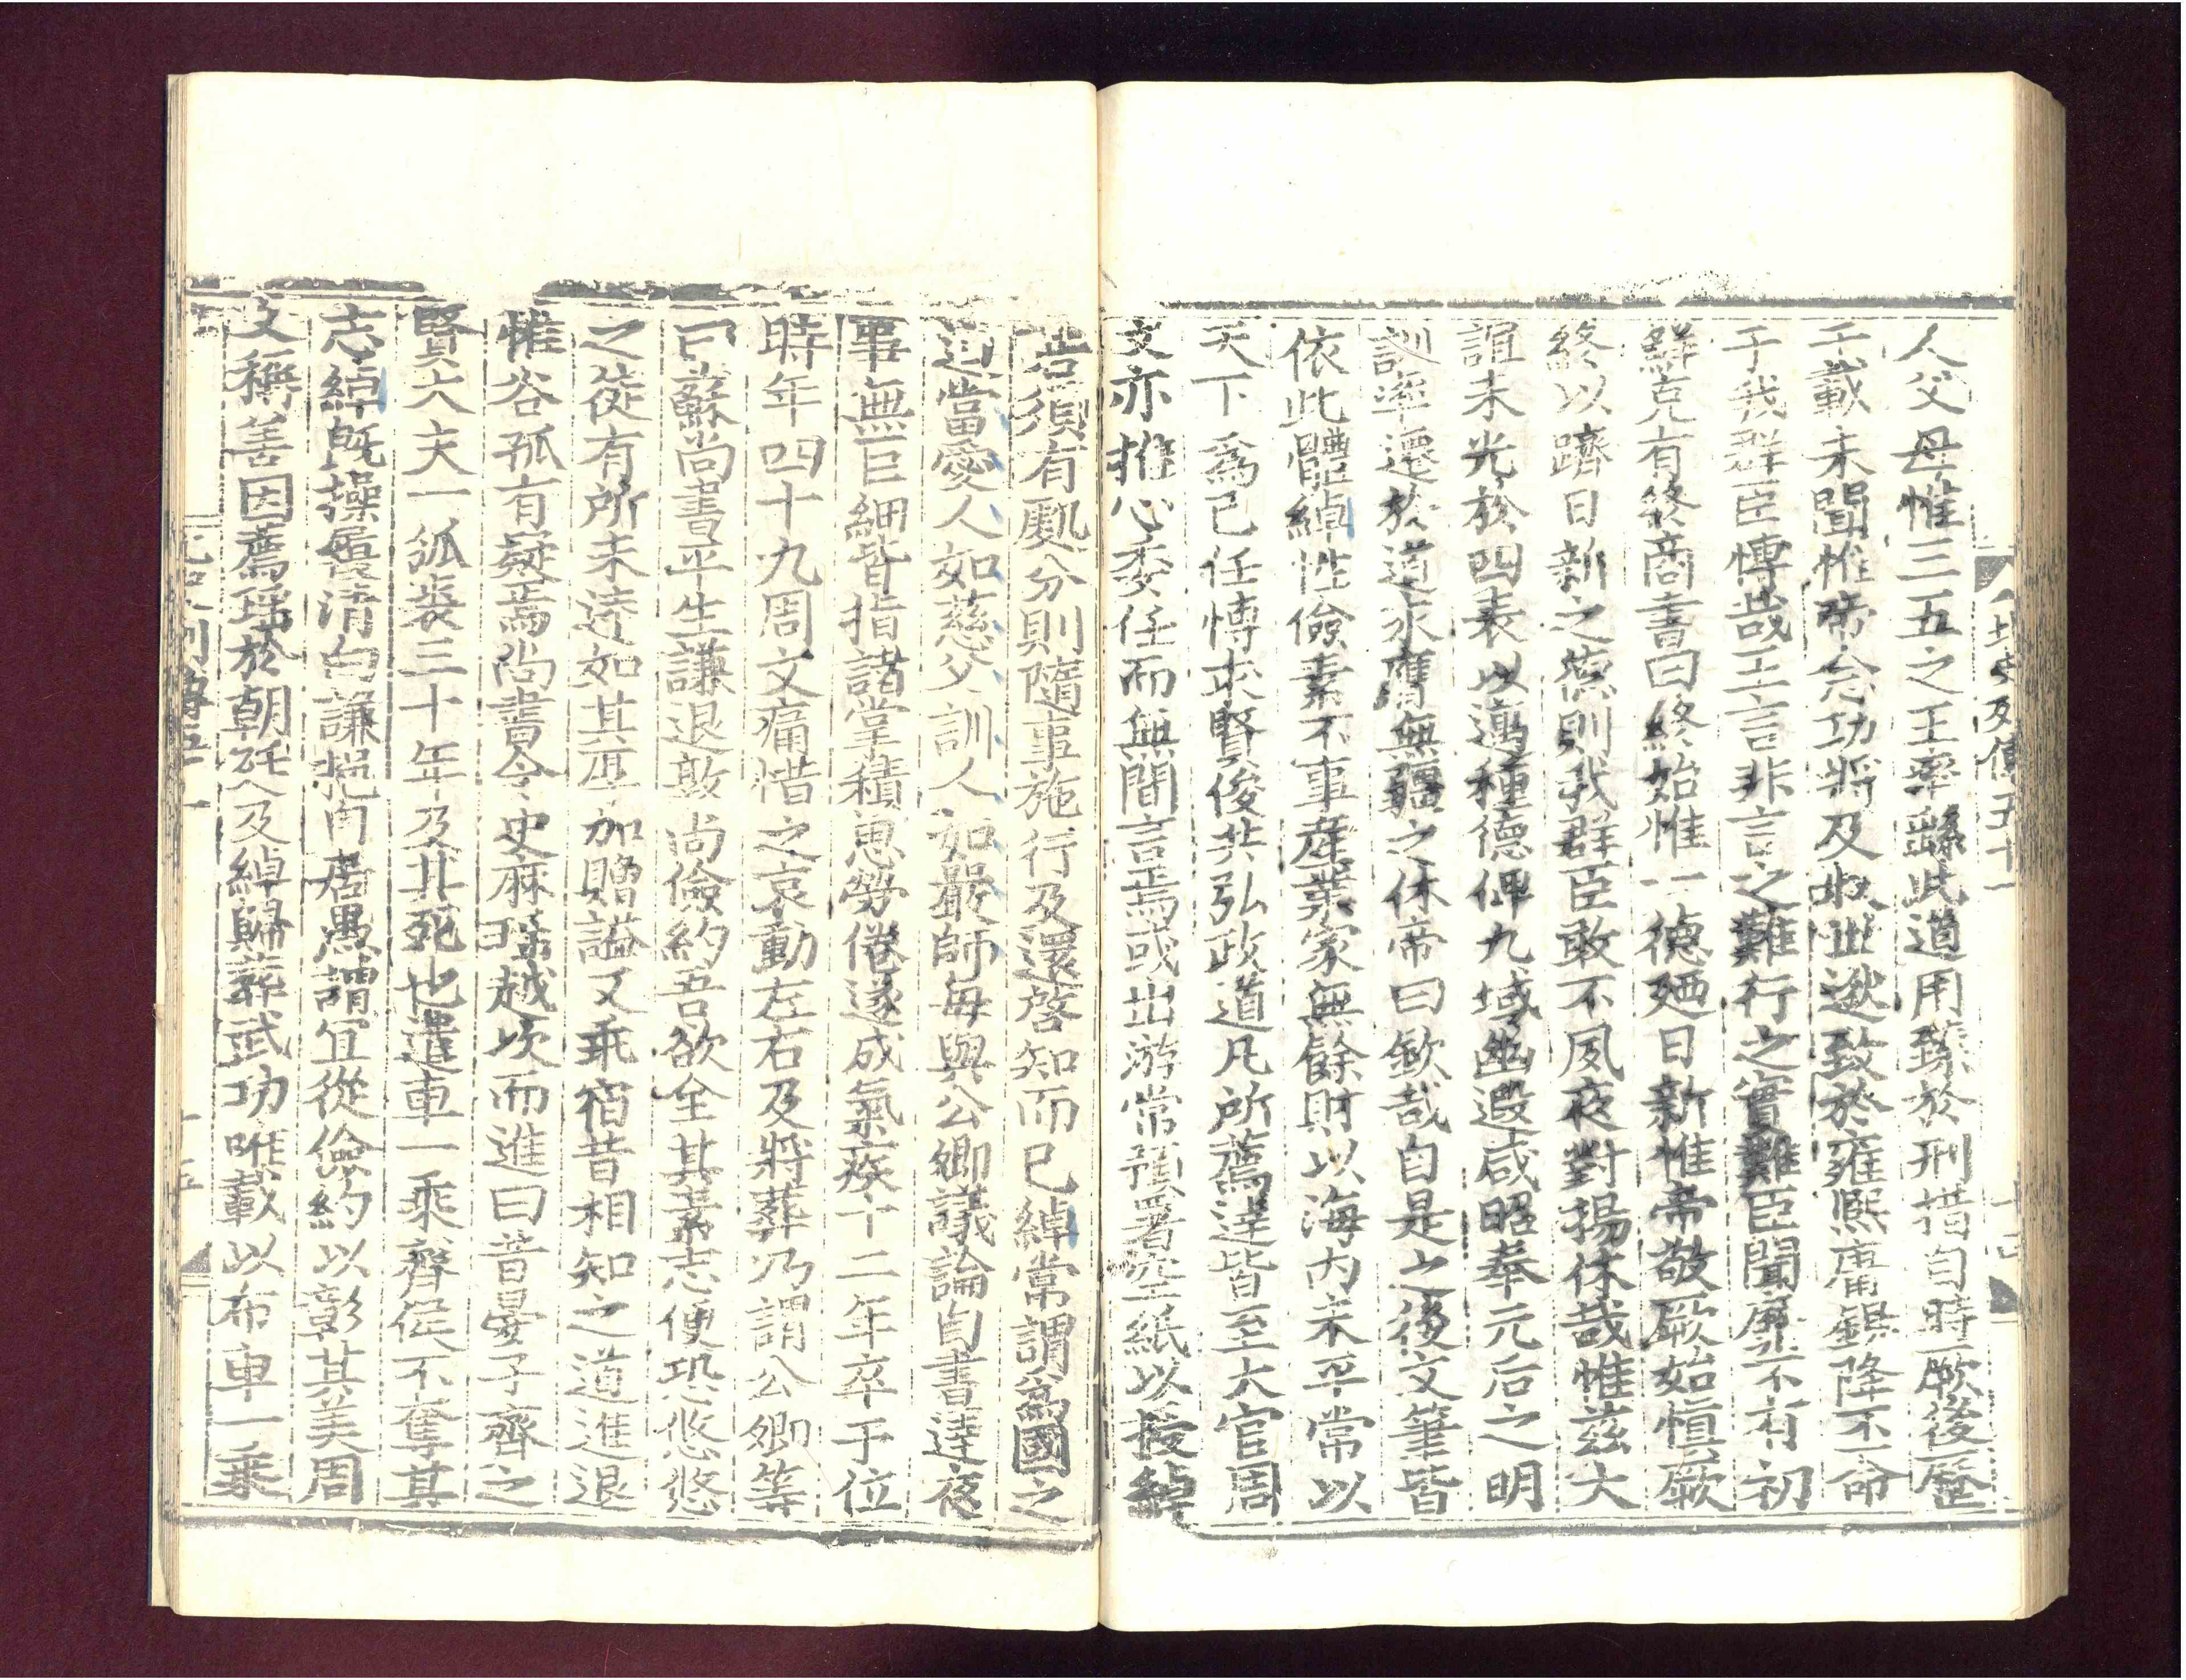 北史列傳五十一
十五
人父母惟三五之王率繇此道用臻於刑措自時厥後歷
千載未聞惟帝念功將及叔世逖致於雍熙庸錫降丕命
于我群臣博哉王言非言之難行之實難臣聞靡不有初
鮮克有終商書曰終始惟一德廼日新惟帝敬厥始慎厥
終以躋日新之德則我群臣敢不夙夜對揚休哉惟茲大
誼未光於四表以邁種德俾九域幽遐咸昭奉元后之明
訓率遷於道永膺無疆之休帝曰欽哉自是之後文筆皆
依此體綽性儉素不事產業家無餘財以海內未平常以
天下爲己任博求賢俊共弘政道凡所薦達皆至大官周
文亦推心委任而無間言焉或出游常預署空紙以授綽
若須有處分則隨事施行及還啓知而已綽常謂爲國之
道當愛人如慈父訓人如嚴師每與公卿議論自晝達夜
事無巨細皆指諸掌積思勞倦遂成氣疾十二年卒于位
時年四十九周文痛惜之哀動左右及將葬乃謂公卿等
曰蘇尚書平生謙退敦尚儉約吾欲全其素志便恐悠悠
之徒有所未達如其厚加贈諡又乖宿昔相知之道進退
惟谷孤有疑焉尚書令史麻瑤越次而進曰昔晏子齊之
賢大夫一狐裘三十年及其死也遣車一乘齊侯不奪其
志綽既操履清白謙挹自居愚謂宜從儉約以彰其美周
文稱善因薦瑤於朝廷及綽歸葬武功唯載以布車一乘
列傳五十一
十五